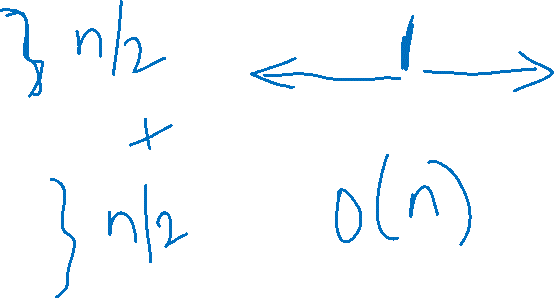 } n/2
+
} n/2
O(n)